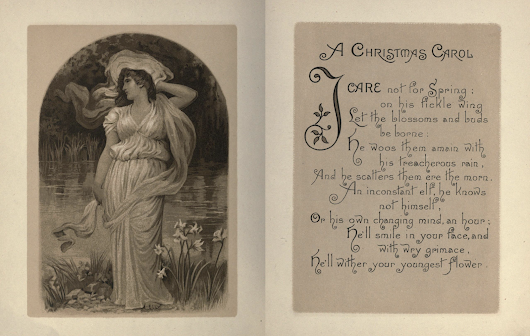 A CHRISTMAS CAROL
I CARE not for Spring;
on his fickle wing
Let the blossoms and buds
be borne:
He woos them amain with
his treacherous rain,
And he scatters them ere the morn.
An inconstant elf, he knows
not himself,
Or his own changing mind, an hour;
He'll smile in your face, and
with wry grimace,
He'll wither your youngest flower.